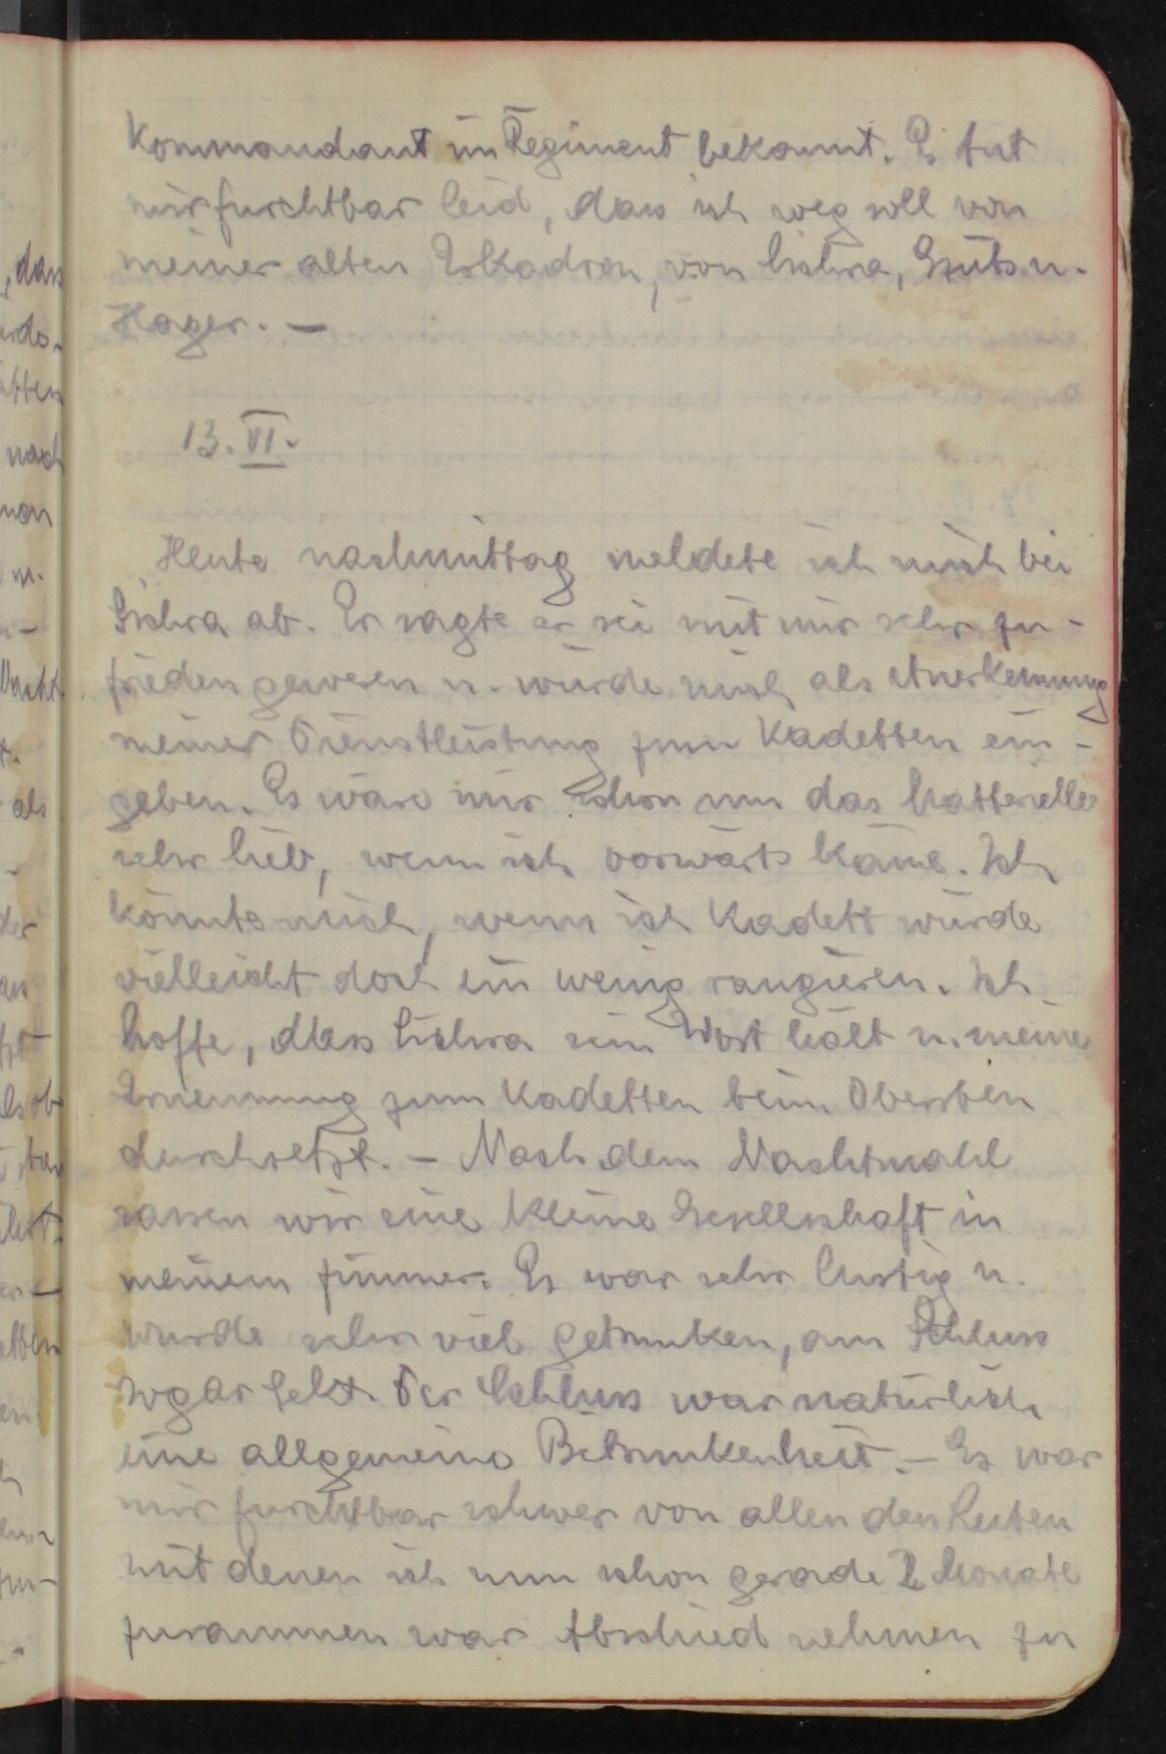 Kommandant im Regiment bekannt. Es tut
mir furchtbar leid, dass ich weg soll von
meiner alten Eskadron, von Lishra, u.
Hager. —
13. VI.
Heute nachmittag meldete ich mich bei
Lishra ab. Er sagte er sei mit mir sehr zu-
frieden gewesen u. würde mich als Anerkennung
meiner Dienstleistung zum Kadetten ein-
geben. Es wäre mir schon um das Matterielle
sehr lieb, wenn ich vorwärts käme. Ich
könnte mich, wenn ich Kadett würde
vielleicht doch ein wenig rangieren. Ich
hoffe, dass Lishra sein Wort hält u. meine
Ernennung zum Kadetten beim Obersten
durchsetzt. — Nach dem Nachtmahl
sassen wir eine kleine Gesellschaft in
meinem Zimmer. Es war sehr lustig u.
wurde sehr viel getrunken, am Schluss
sogar Sekt. Der Schluss war natürlich
eine allgemeine Betrunkenheit. — Es war
mir furchtbar schwer von allen den Leuten
mit denen ich nun schon gerade 2 Monate
zusammen war Abschied nehmen zu